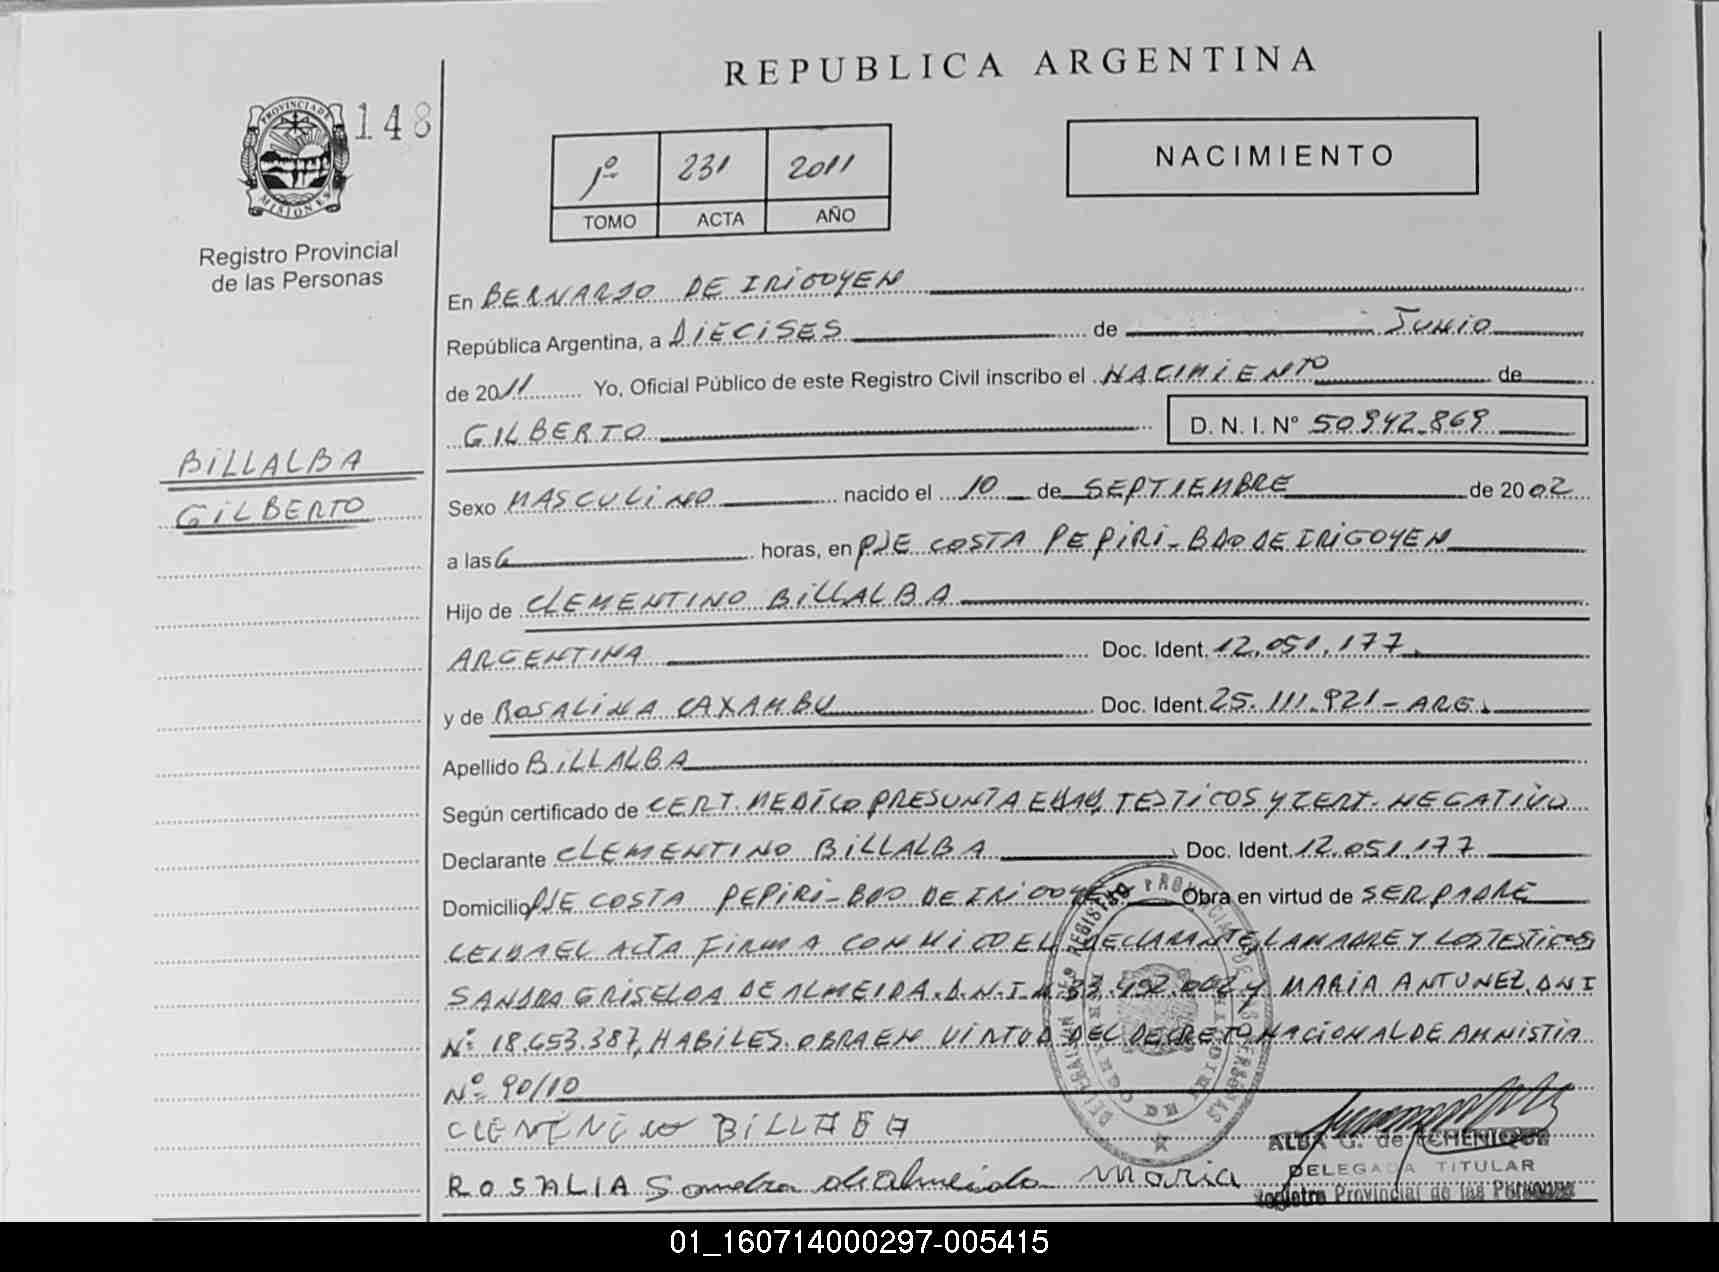 REPUBLICA ARGENTINA
PROVINCIA DE
MISIONES
148
Registro Provincial
de las Personas
1º 231 2011
TOMO ACTA AÑO
NACIMIENTO
BILLALBA
GILBERTO
En BERNARDO DE IRIGOYEN
República Argentina, a DIECISES de JUNIO
de 2011 Yo, Oficial Público de este Registro Civil inscribo el NACIMIENTO de
GILBERTO D. N. I. Nº 50.942.869
Sexo MASCULINO nacido el 10 de SEPTIEMBRE de 2002
a las 6 horas, en PJE COSTA PEPIRI-BDO DE IRIGOYEN
Hijo de CLEMENTINO BILLALBA
ARGENTINA Doc. Ident. 12.051.177.
y de ROSALINA CAXAMBU Doc. Ident. 25.111.921-ARG.
Apellido BILLALBA
Según certificado de CERT. MEDICO PRESUNTA EDAD, TESTIGOS Y CERT. NEGATIVO
Declarante CLEMENTINO BILLALBA Doc. Ident. 12.051.177
Domicilio PJE COSTA PEPIRI-BDO DE IRIGOYEN Obra en virtud de SER PADRE
LEIDA EL ACTA FIRMA CONMIGO EL DECLARANTE, LA MADRE Y LOS TESTIGOS
SANDRA GRISELDA DE ALMEIDA. D.N.I. Nº 33.492.002 y MARIA ANTUNEZ. DNI
Nº 18.653.387, HABILES. OBRA EN VIRTUD DEL DECRETO NACIONAL DE AMNISTIA
Nº 90/10
BILLABA
ROSALIA Sandra de Almeida Maria
ALBA G. de ECHENIQUE
DELEGADA TITULAR
Registro Provincial de las Personas
01_160714000297-005415